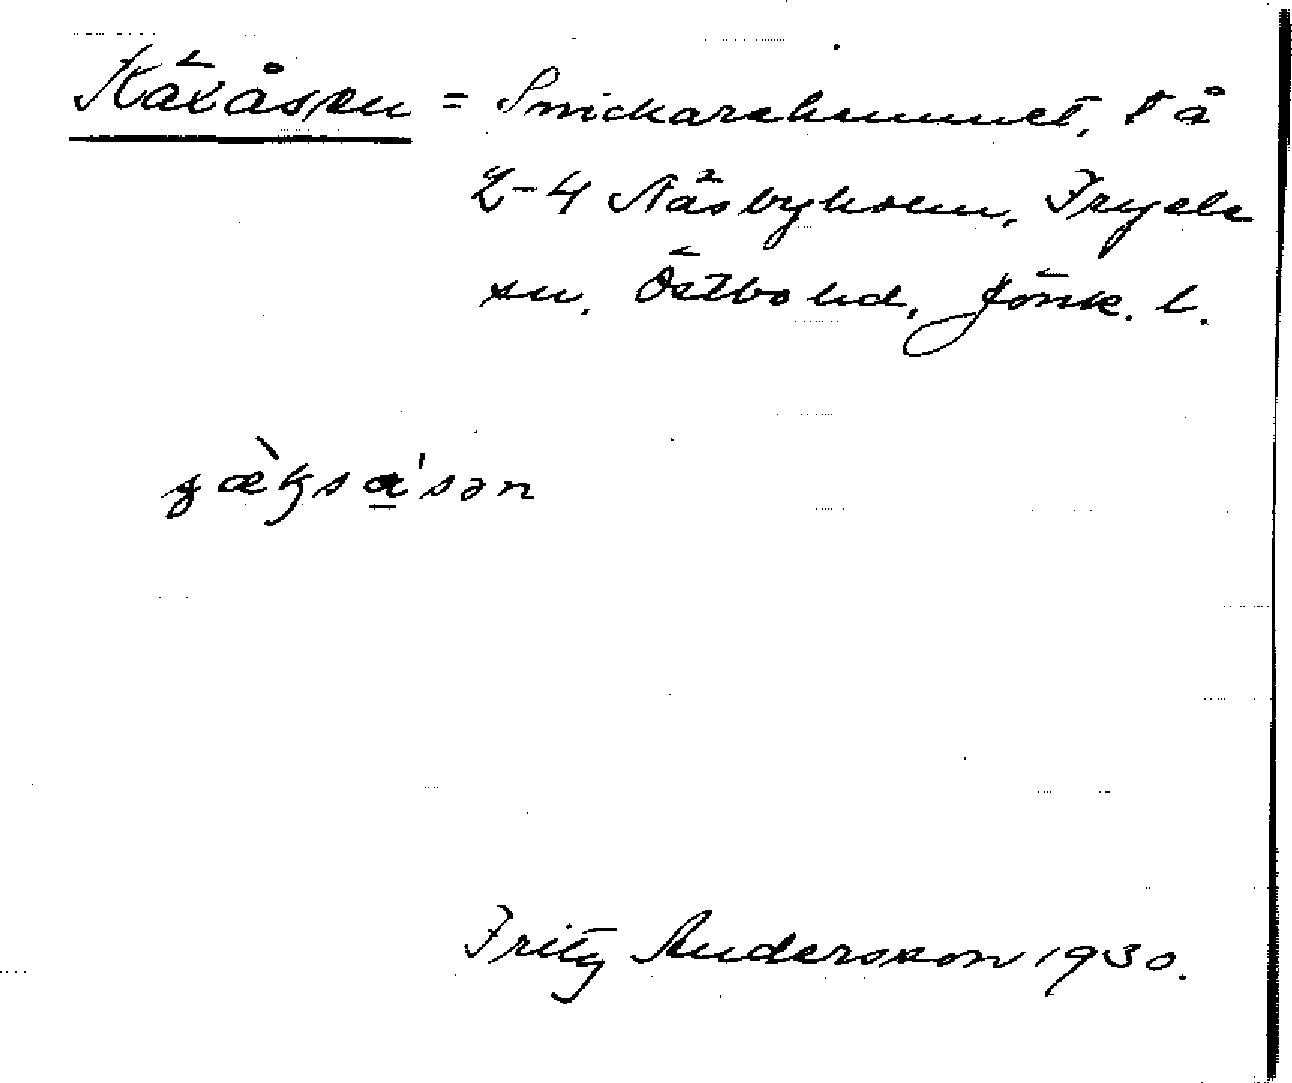 Käxåsen = Snickarehemmet, t å
2-4 Näsbyholm, Fryele
sn. Östbo hd, Jönk. l.
Fritz Andersson 1930.